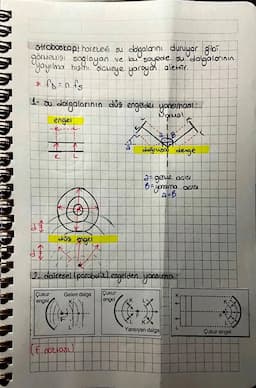 stroboskop: hareketli su dalgalarını duruyor gibi
görünmesini sağlayan ve bu sayede su dalgalarının
yayılma hızını ölçmeye yarayan alettir.
* fD = n.fs
1- su dalgalarının düz engelden yansıması:
engel
normal
doğrusal dalga
α = gelme açısı
θ = yansıma açısı
α = θ
düz engel
2- dairesel (parabolik) engelden yansıma
Çukur engel
Gelen dalga
Çukur engel
Yansıyan dalga
Çukur engel
(F noktası)